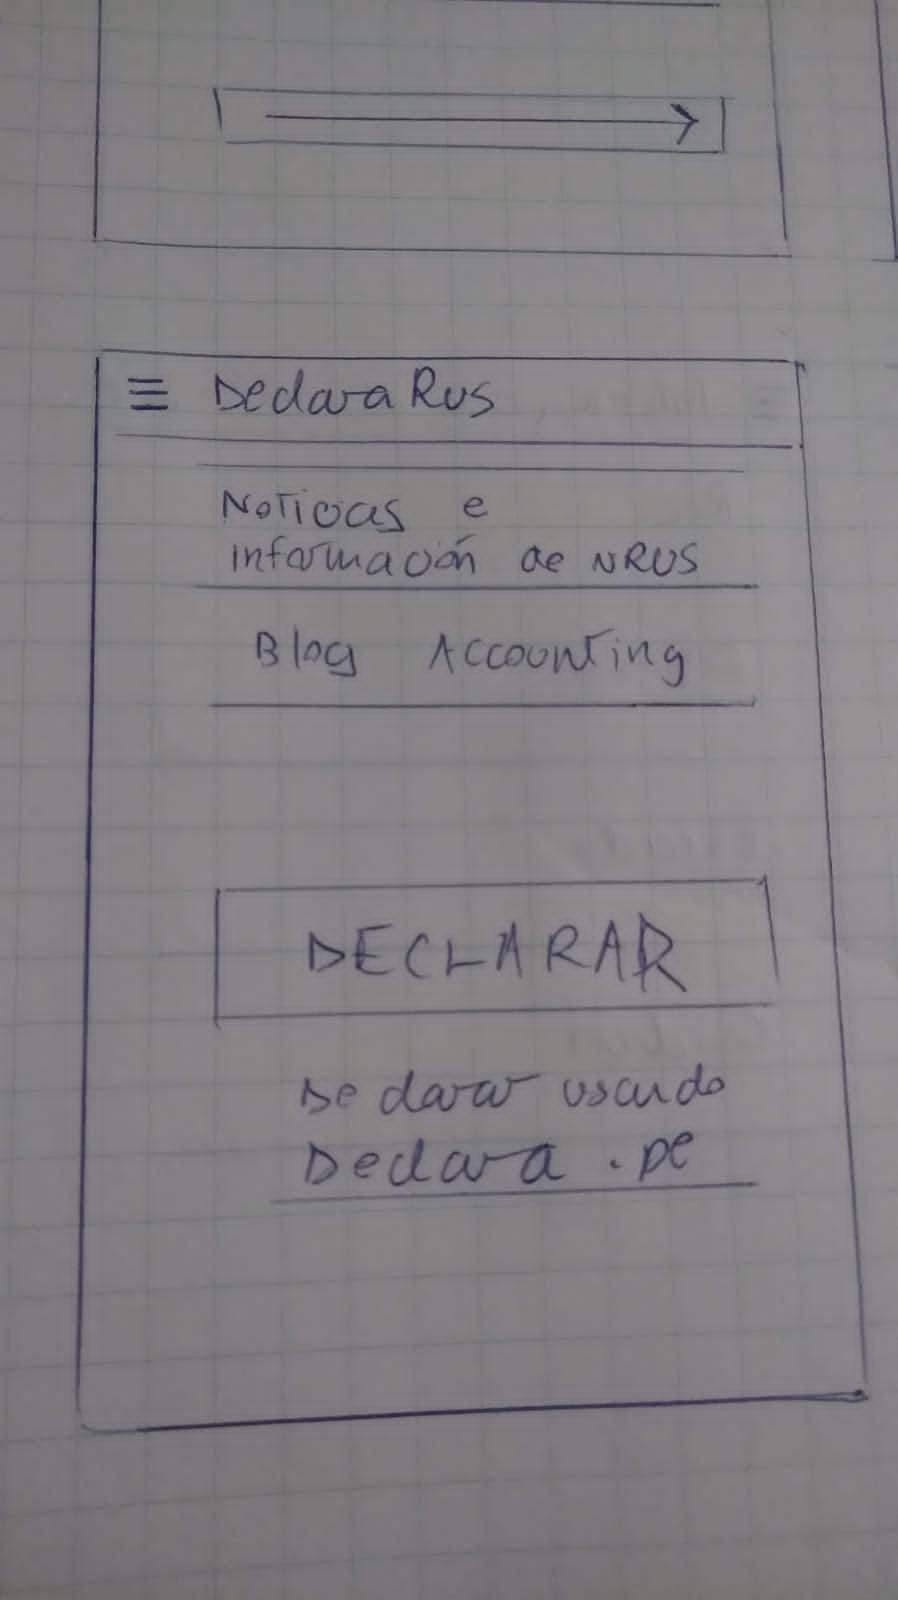 DeclaraRUS
Noticias e
información de NRUS
Blog Accounting
DECLARAR
Declarar usando
Declara.pe